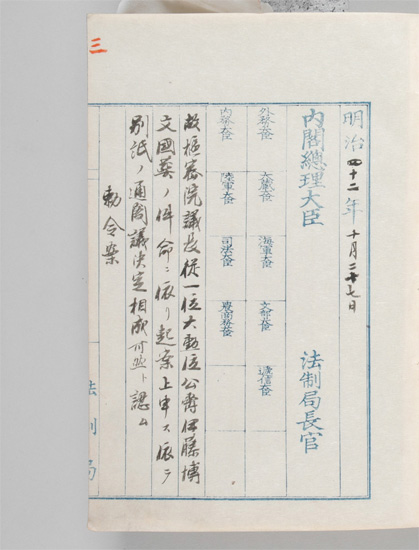 明治四十二年十月二十七日
内閣總理大臣
法制局長官
外務大臣
大藏大臣
海軍大臣
文部大臣
遞信大臣
内務大臣
陸軍大臣
司法大臣
農商務大臣
故樞密院議長從一位大勳位公爵伊藤博
文國葬ノ件命ニ依リ起案上申ス依テ
別紙ノ通閣議決定相成可然ト認ム
勅令案
法制局
三